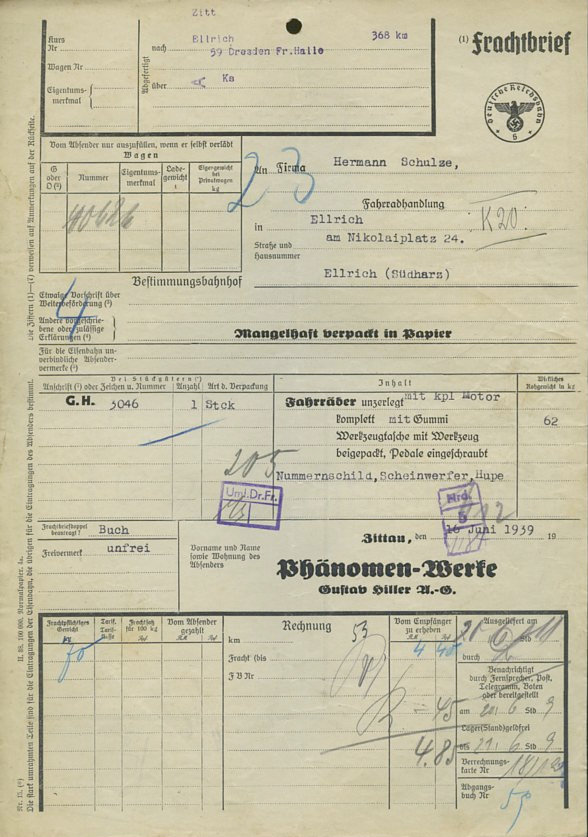 Zitt
Kurs
Nr
Wagen Nr
Eigentums-
merkmal
Abgefertigt
nach
Ellrich
368 km
59 Dresden Fr.Halle
über
A
Ks
(1) Frachtbrief
Deutsche Reichsbahn
6
Vom Absender nur auszufüllen, wenn er selbst verlädt
Wagen
G oder O (2)
Nummer
Eigentums-merkmal
Lade-gewicht t
Eigengewicht bei Privatwagen kg
40626
23
An Firma
Hermann Schulze,
Fahrradhandlung
in
Ellrich
K20
Straße und
Hausnummer
am Nikolaiplatz 24.
Bestimmungsbahnhof
Ellrich (Südharz)
Etwaige Vorschrift über
Weiterbeförderung (3)
4
Andere vorgeschrie-
bene oder zulässige
Erklärungen (4)
Mangelhaft verpackt in Papier
Für die Eisenbahn un-
verbindliche Absender-
vermerke (5)
Bei Stückgütern
Anschrift (6) oder Zeichen u. Nummer
Anzahl
Art d. Verpackung
Inhalt
Wirkliches
Rohgewicht in kg
G.H. 3046
1 Stck
Fahrräder unzerlegt mit kpl Motor
komplett mit Gummi
62
Werkzeugtasche mit Werkzeug
beigepackt, Pedale eingeschraubt
205
Nummernschild,Scheinwerfer,Hupe
Uml.Dr.Fr.
Nrd.
5
Frachtbriefdoppel
beantragt?
Buch
Freivermerk
unfrei
Zittau, den
16 Juni 1939
19
Vorname und Name
sowie Wohnung des
Absenders
Phänomen-Werke
Gustav Hiller A.-G.
Frachtpflichtiges
Gewicht
kg
Frachtsatz
für 100 kg
Vom Absender
gezahlt
Rechnung
53
Vom Empfänger
zu erheben
Ausgeliefert am
70
km
4 40
Fracht (bis
durch
F B Nr
Benachrichtigt
durch Fernsprecher, Post,
Telegramm, Boten
oder bereitgestellt
45
am 20. 6 Std 9
Lager(Stand)geldfrei
4.85
bis 21. 6 Std 9
Verrechnungs-
karte Nr
Abgangs-
buch Nr
Die Ziffern (1)—(7) verweisen auf Anmerkungen auf der Rückseite.
Die stark umrahmten Teile sind für die Eintragungen der Eisenbahn, die übrigen für die Eintragungen des Absenders bestimmt.